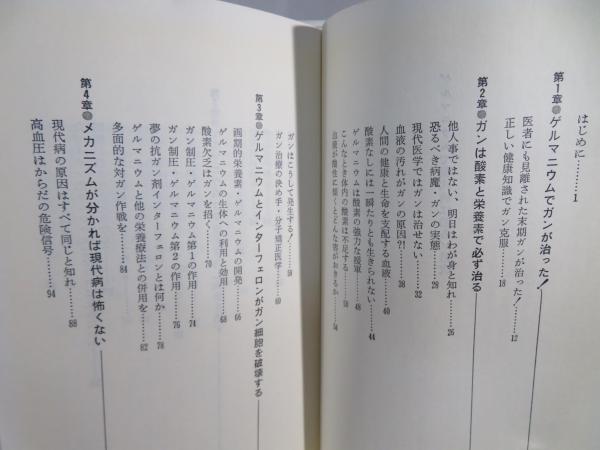 はじめに………1
第1章●ゲルマニウムでガンが治った!
医者にも見離された末期ガンが治った!……12
正しい健康知識でガン克服……18
第2章●ガンは酸素と栄養素で必ず治る
他人事ではない、明日はわが身と知れ……26
恐るべき病魔・ガンの実態……28
現代医学ではガンは治せない……32
血液の汚れがガンの原因?!……38
人間の健康と生命を支配する血液……40
酸素なしには一瞬たりとも生きられない……44
ゲルマニウムは酸素の強力な援軍……50
こんなとき体内の酸素は不足する……50
血液が酸性に傾くとどんな害がおきるか……54
ガンはこうして発生する!……59
ガン治療の決め手・分子矯正医学……60
第3章●ゲルマニウムとインターフェロンがガン細胞を破壊する
画期的栄養素・ゲルマニウムの開発……66
ゲルマニウムの生体への利用と効用……68
酸素欠乏はガンを招く……70
ガン制圧・ゲルマニウム第1の作用……74
ガン制圧・ゲルマニウム第2の作用……76
夢の抗ガン剤インターフェロンとは何か……78
ゲルマニウムと他の栄養療法との併用を……82
多面的な対ガン作戦を……84
第4章●メカニズムが分かれば現代病は怖くない
現代病の原因はすべて同じと知れ……88
高血圧はからだの危険信号……94